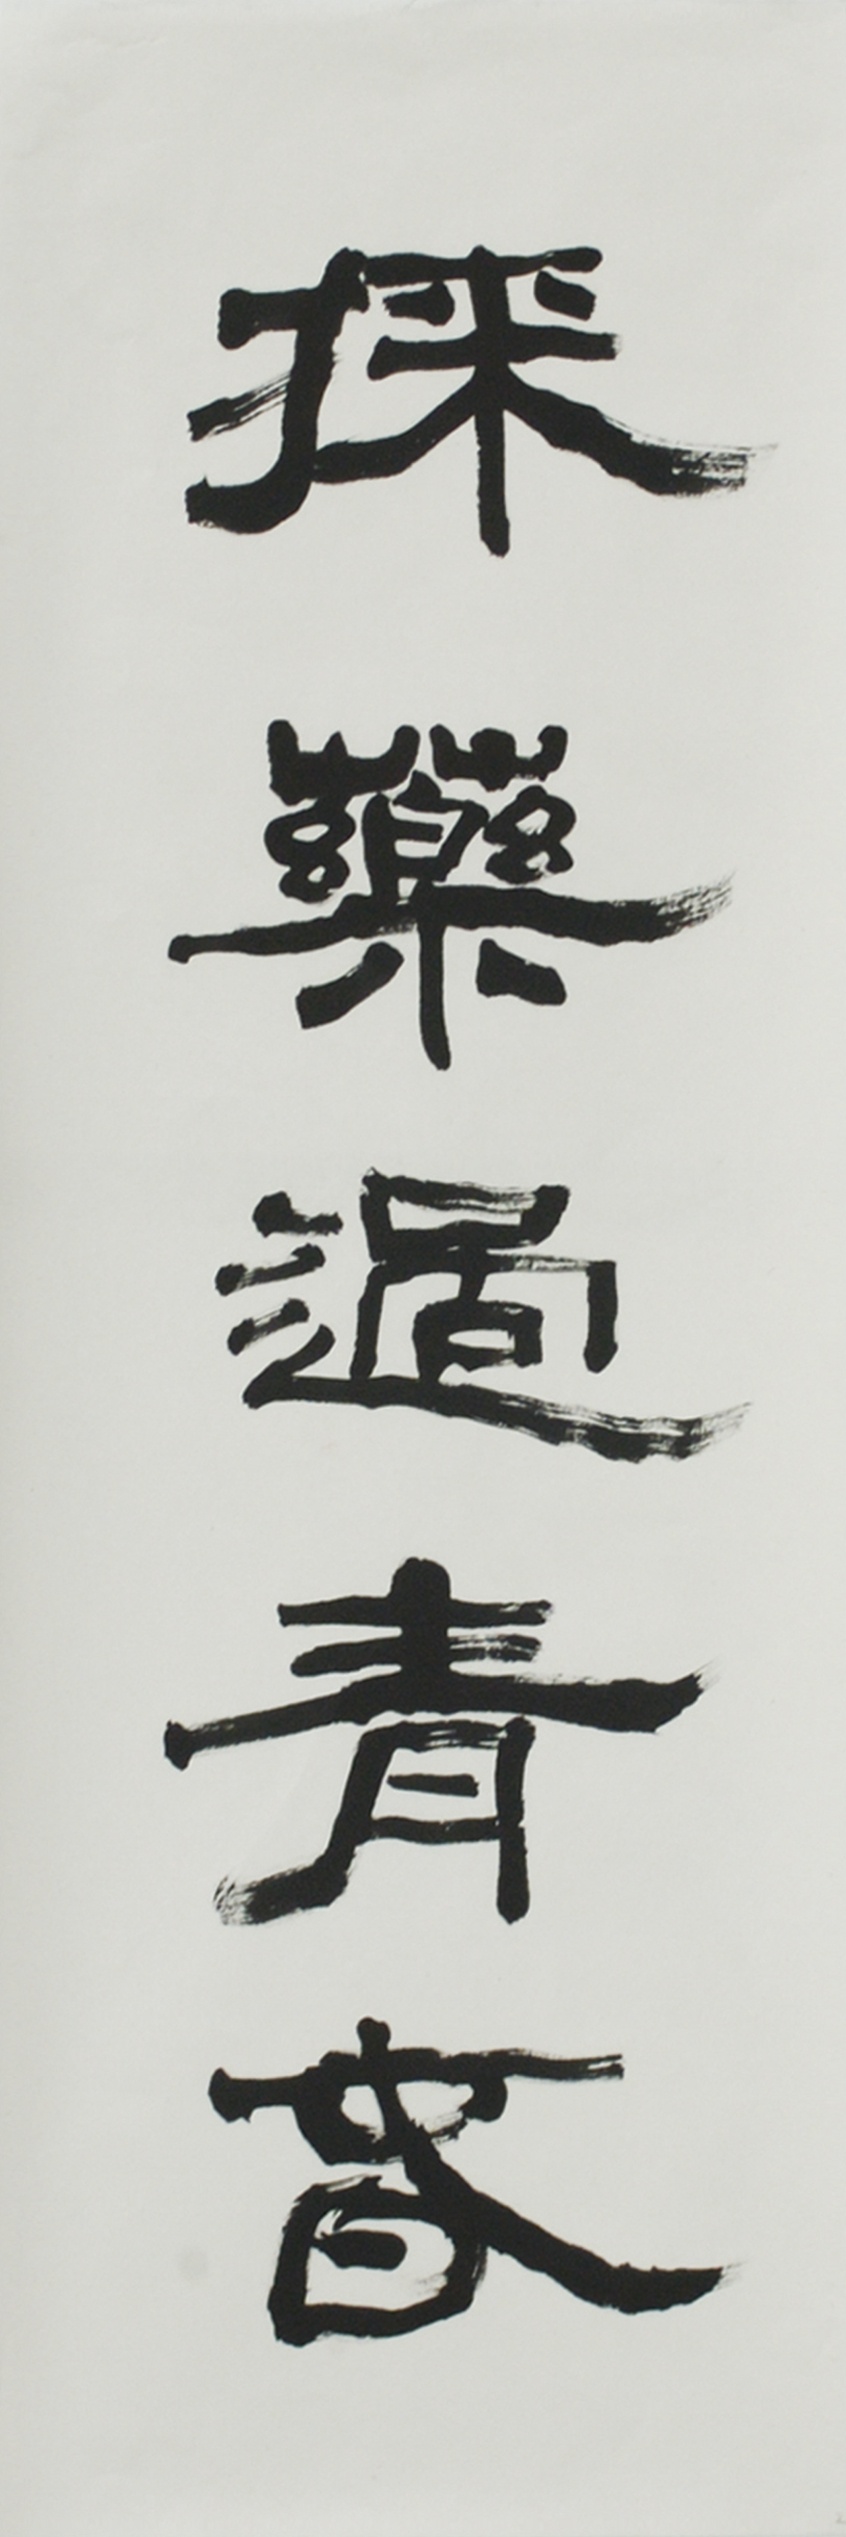 採藥過青春